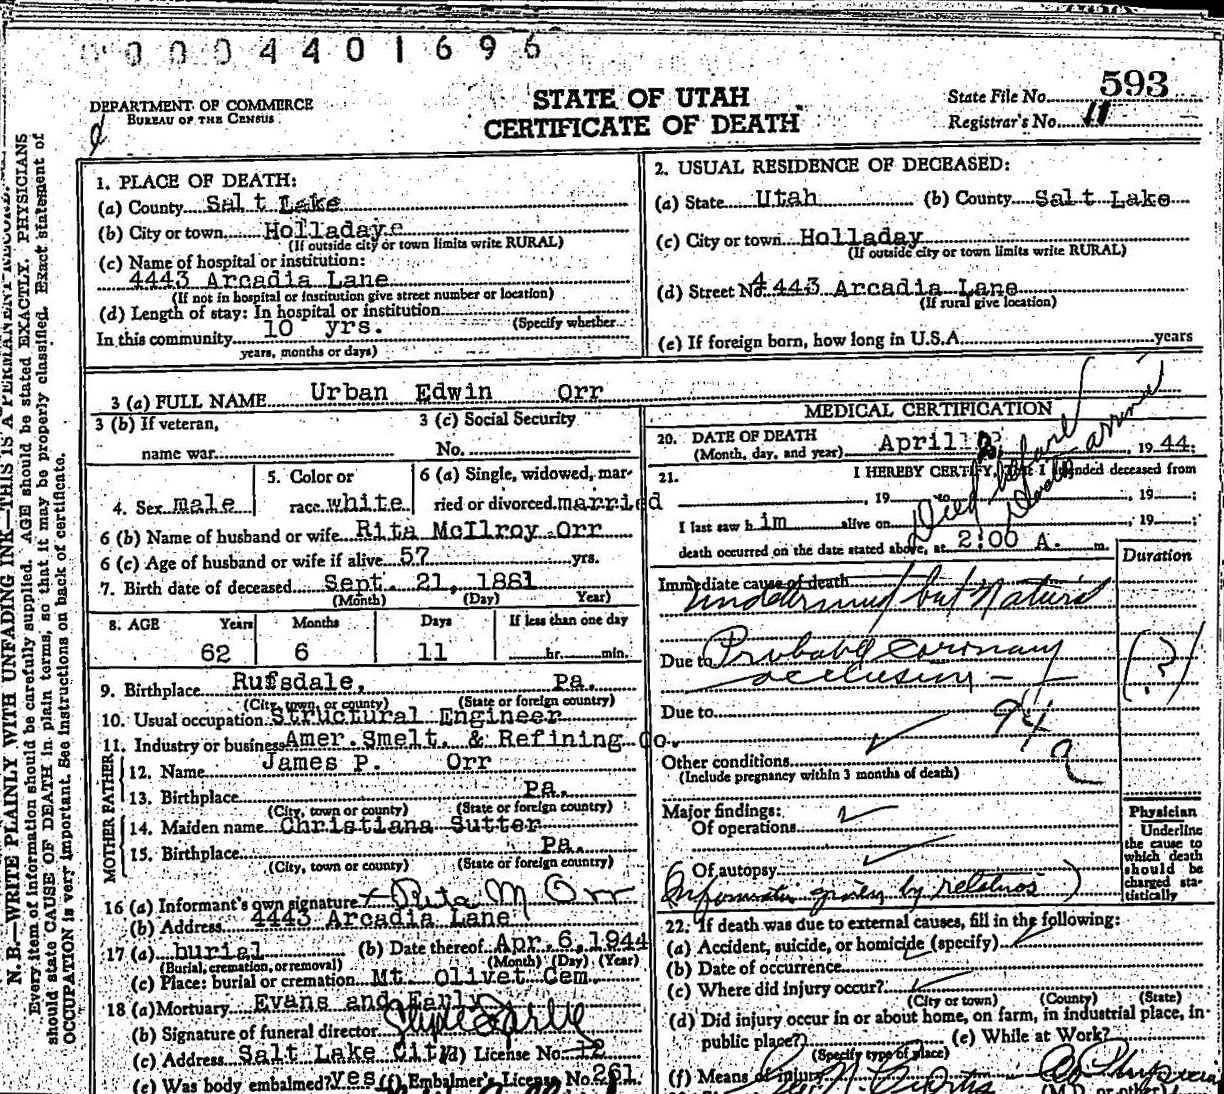 0004401696
593
DEPARTMENT OF COMMERCE
BUREAU OF THE CENSUS
STATE OF UTAH
CERTIFICATE OF DEATH
State File No.
Registrar's No. 11
N. B.—WRITE PLAINLY WITH UNFADING INK—THIS IS A PERMANENT
Every item of information should be carefully supplied. AGE should be stated EXACTLY. PHYSICIANS
should state CAUSE OF DEATH in plain terms, so that it may be properly classified. Exact statement of
OCCUPATION is very important. See instructions on back of certificate.
1. PLACE OF DEATH:
(a) County Salt Lake
(b) City or town Holladay
(If outside city or town limits write RURAL)
(c) Name of hospital or institution:
4443 Arcadia Lane
(If not in hospital or institution give street number or location)
(d) Length of stay: In hospital or institution
(Specify whether
In this community 10 yrs.
years, months or days)
2. USUAL RESIDENCE OF DECEASED:
(a) State Utah (b) County Salt Lake
(c) City or town Holladay
(If outside city or town limits write RURAL)
(d) Street No. 4443 Arcadia Lane
(If rural give location)
(e) If foreign born, how long in U.S.A. years
3 (a) FULL NAME Urban Edwin Orr
3 (b) If veteran,
name war
3 (c) Social Security
No.
4. Sex male
5. Color or
race white
6 (a) Single, widowed, mar-
ried or divorced married
6 (b) Name of husband or wife Rita McIlroy Orr
6 (c) Age of husband or wife if alive 57 yrs.
7. Birth date of deceased Sept. 21, 1881
(Month) (Day) Year)
8. AGE Years Months Days If less than one day
62 6 11 hr. min.
9. Birthplace Rufsdale, Pa.
(City, town, or county) (State or foreign country)
10. Usual occupation Structural Engineer
11. Industry or business Amer. Smelt. & Refining Co.
FATHER
12. Name James P. Orr
13. Birthplace Pa.
(City, town or county) (State or foreign country)
MOTHER
14. Maiden name Christiana Sutter
15. Birthplace Pa.
(City, town or county) (State or foreign country)
16 (a) Informant's own signature x Rita M Orr
(b) Address 4443 Arcadia Lane
17 (a) burial (b) Date thereof Apr. 6, 1944
(Burial, cremation, or removal) (Month) (Day) (Year)
(c) Place: burial or cremation Mt. Olivet Cem.
18 (a) Mortuary Evans and Early
(b) Signature of funeral director Clyde Early
(c) Address Salt Lake City (d) License No. 12
(e) Was body embalmed? yes (f) Embalmer's License No. 261
MEDICAL CERTIFICATION
20. DATE OF DEATH April 1944
(Month, day, and year)
21. I HEREBY CERTIFY, That I attended deceased from
, 19 to , 19 ;
Died before
Death arrival
I last saw h im alive on , 19 ;
death occurred on the date stated above, at 2:00 A. m.
Duration
Immediate cause of death
Undetermined but Natural
Due to Probable coronary
occlusion –
(?)
Due to
94a
Other conditions
(Include pregnancy within 3 months of death)
Major findings:
Of operations
Of autopsy
(Information given by relatives)
Physician
Underline
the cause to
which death
should be
charged sta-
tistically
22. If death was due to external causes, fill in the following:
(a) Accident, suicide, or homicide (specify)
(b) Date of occurrence
(c) Where did injury occur?
(City or town) (County) (State)
(d) Did injury occur in or about home, on farm, in industrial place, in
public place? (e) While at Work?
(Specify type of place)
(f) Means of injury
(M.D. or other)